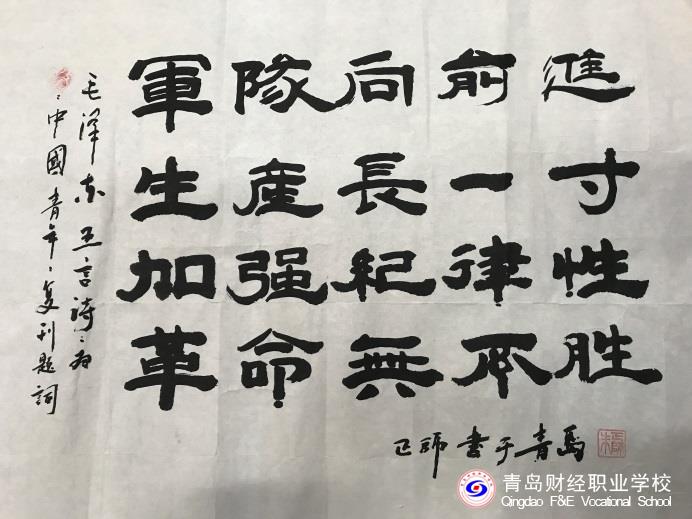 軍隊向前進
生産長一寸
加强紀律性
革命無不胜
毛泽东五言詩:为
:中國青年:复刊题詞
正师书于青島
青岛财经职业学校
Qingdao F&E Vocational School